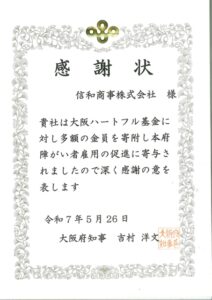 感謝状
信和商事株式会社 様
貴社は大阪ハートフル基金に
対し多額の金員を寄附し本府
障がい者雇用の促進に寄与さ
れましたので深く感謝の意を
表します
令和7年5月26日
大阪府知事 吉村洋文